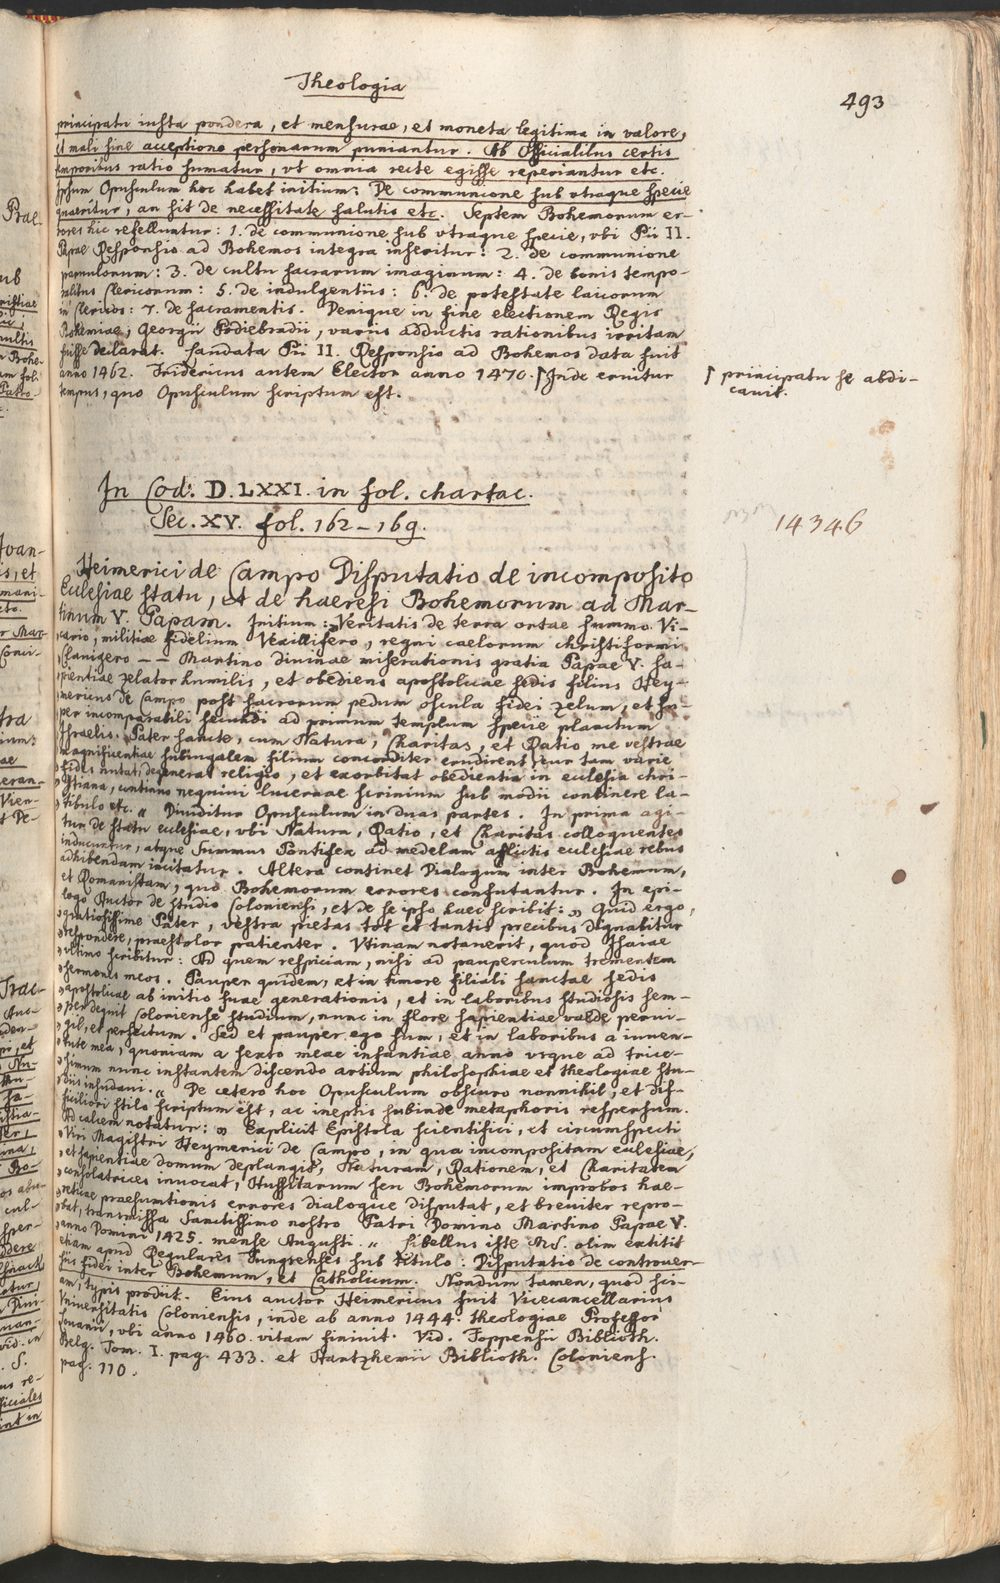 Theologia
493
principatu iusta pondera, et mensurae, et moneta legitima in valore,
et mali sine acceptione personarum puniantur. Ab Officialibus certis
temporibus ratio sumatur, vt omnia recte egisse reperiantur etc.
Ipsum Opusculum hoc habet initium: De communione sub vtraque specie
quaeritur, an sit de necessitate salutis etc. Septem Bohemorum er-
rores hic refelluntur: 1. de communione sub vtraque specie, vbi Pii II.
Papae Responsio ad Bohemos integra inseritur: 2. de communione
parvulorum: 3. de cultu sacrarum imaginum: 4. de bonis tempo-
ralibus Clericorum: 5. de indulgentiis: 6. de potestate laicorum
in Clericos: 7. de sacramentis. Denique in fine electionem Regis
Bohemiae, Georgii Podiebradii, variis adductis rationibus irritam
fuisse declarat. Laudata Pii II. Responsio ad Bohemos data fuit
anno 1462. Fridericus autem Elector anno 1470. ⌈ Inde eruitur
tempus, quo Opusculum scriptum est.
⌈ principatu se abdi-
cavit.
In Cod: D. LXXI. in fol. chartac.
Sec. XV. fol. 162 – 169.
14346
Heimerici de Campo Disputatio de incomposito
Ecclesiae statu, et de haeresi Bohemorum ad Mar-
tinum V. Papam. Initium: „Veritatis de terra ortae summo Vi-
„cario, militiae fidelium Vexillifero, regni caelorum christiformi
„Clavigero – – Martino divinae miserationis gratia Papae V. sa-
„pientiae zelator humilis, et obediens apostolicae sedis filius Hey-
„mericus de Campo post sacrorum pedum oscula fidei zelum, et su-
„per incomparabili secundi ad primum templum specie planctum
„Israelis. Pater sancte, cum Natura, Charitas, et Ratio me vestrae
„magnificentiae subiugalem filium concorditer erudirent, cur tam varie
„fides nutat, degenerat religio, et exorbitat obedientia in ecclesia chri-
„stiana, continuo nequivi lucernae scrinium sub modii continere la-
„tibulo etc. “ Dividitur Opusculum in duas partes. In prima agi-
tur de statu ecclesiae, vbi Natura, Ratio, et Charitas colloquentes
inducuntur, atque Summus Pontifex ad medelam afflictis ecclesiae rebus
adhibendam incitatur. Altera continet Dialogum inter Bohemum,
et Romanistam, quo Bohemorum errores confutantur. In epi-
logo Auctor de studio Coloniensi, et de se ipso haec scribit: „ Quid ergo,
„gratiosissime Pater, vestra pietas tot et tantis precibus dignabitur
„respondere, praestolor patienter. Vtinam notaverit, quod Isaiae
„vltimo scribitur: Ad quem respiciam, nisi ad pauperculum trementem
„sermones meos. Pauper quidem, et in timore filiali sanctae sedis
„apostolicae ab initio suae generationis, et in laboribus studiosis sem-
„per deguit Coloniense studium, nunc in flore sapientiae valde pervi-
„gil, et perfectum. Sed et pauper ego sum, et in laboribus a iuven-
„tute mea, quoniam a sexto meae infantiae anno vsque ad trice-
„simum nunc instantem discendo artium philosophiae et theologiae stu-
„diis insudavi. “ De cetero hoc Opusculum obscuro nonnihil, et dif-
ficiliori stilo scriptum est, ac ineptis subinde metaphoris respersum.
Ad calcem notatur: „ Explicit Epistola scientifici, et circumspecti
„Viri Magistri Heymerici de Campo, in qua incompositam ecclesiae,
„et sapientiae domum deplangit, Naturam, Rationem, et Charitatem
„consolatrices invocat, Hussitarum seu Bohemorum improbos hae-
„reticae praesumtionis errores dialogice disputat, et breviter repro-
„bat, transmissa Sanctissimo nostro Patri Domino Martino Papae V.
„anno Domini 1425. mense Augusti. “ Libellus iste MS. olim extitit
etiam apud Regulares Tungrenses sub titulo: Disputatio de controver-
siis fidei inter Bohemum, et Catholicum. Nondum tamen, quod sci-
am, typis prodiit. Eius auctor Heimericus fuit Vicecancellarius
Vniversitatis Coloniensis, inde ab anno 1444. theologiae Professor
Lovanii, vbi anno 1460. vitam finivit. Vid. Foppensii Biblioth.
Belg. Tom. I. pag. 433. et Hartzhemii Biblioth. Coloniens.
pag. 110.